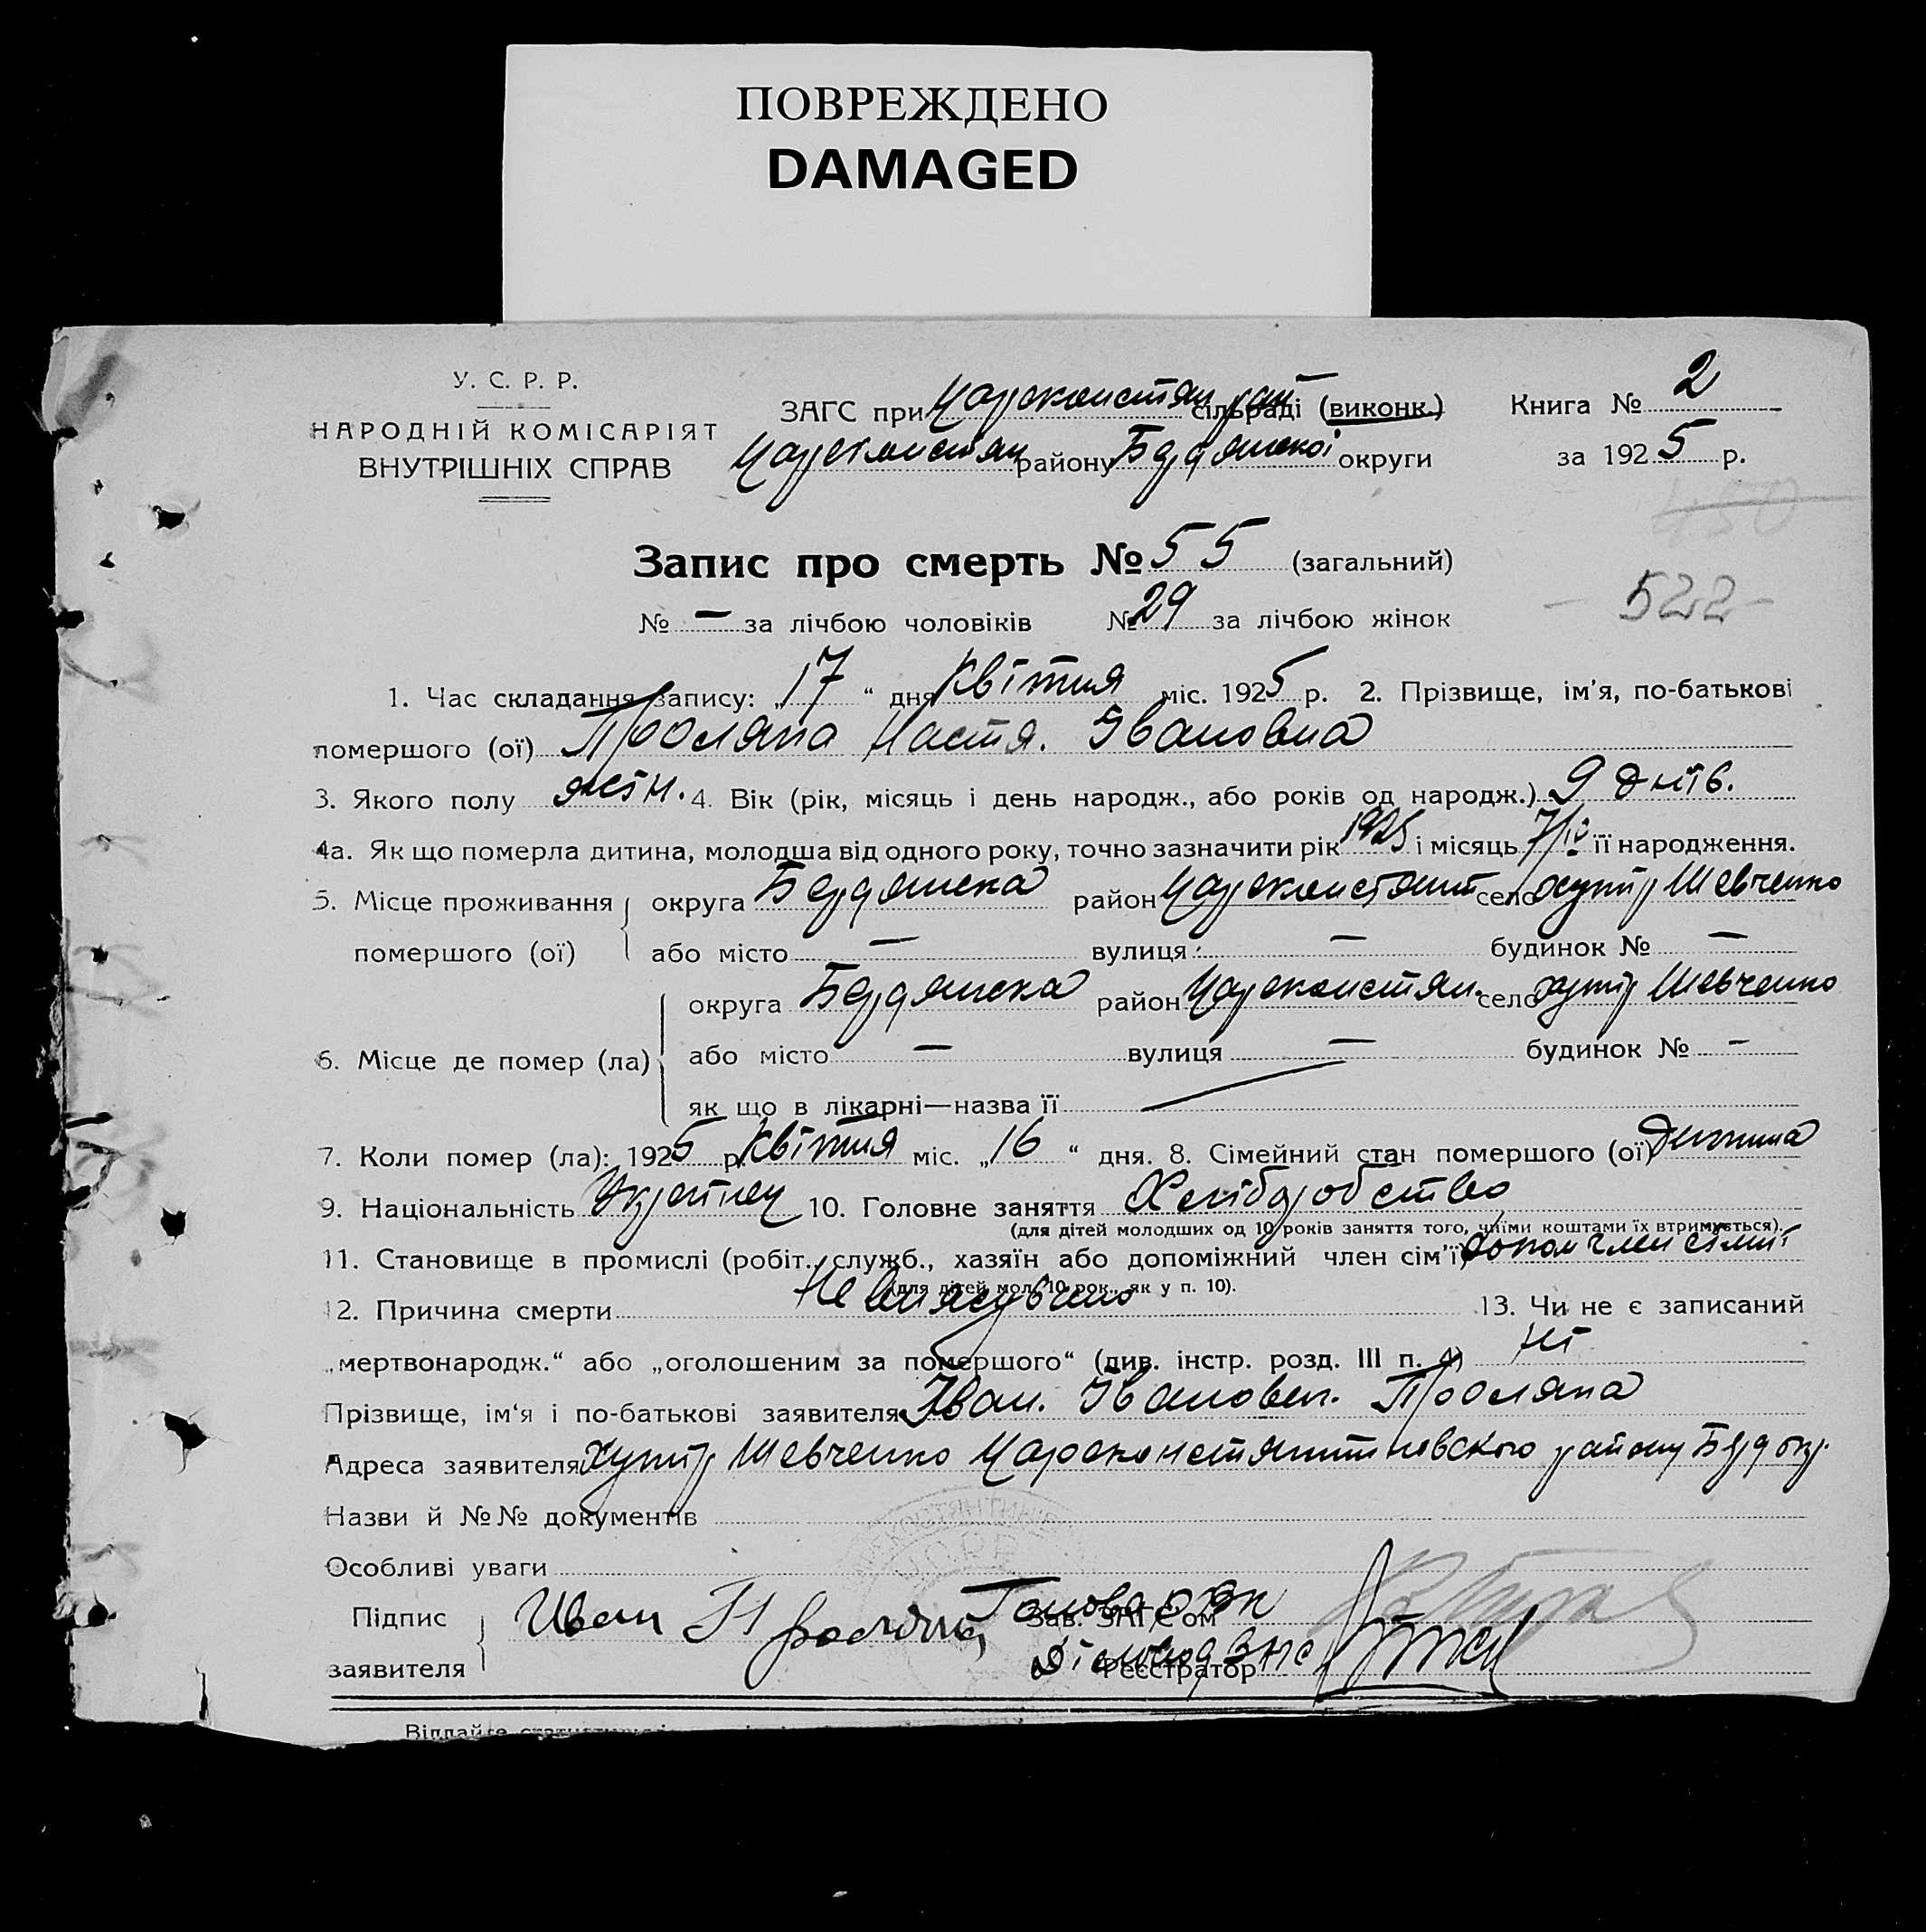 ПОВРЕЖДЕНО
DAMAGED
У. С. Р. Р.
НАРОДНІЙ КОМІСАРІЯТ
ВНУТРІШНІХ СПРАВ
ЗАГС при Царсконстян рай сільраді (виконк.)
Царсконстян району Бердянської округи
Книга № 2
за 1925 р.
450
Запис про смерть № 55 (загальний)
№ — за лічбою чоловіків № 29 за лічбою жінок
- 522 -
1. Час складання запису: „17“ дня Квітня міс. 1925 р. 2. Прізвище, ім'я, по-батькові
помершого (ої) Просляпа Настя. Івановна
3. Якого полу жін. 4. Вік (рік, місяць і день народж., або років од народж.) 9 днів.
4а. Як що померла дитина, молодша від одного року, точно зазначити рік 1925 і місяць 7/IV її народження.
5. Місце проживання помершого (ої) округа Бердянська район Царсконстянт село хутір Шевченко
або місто — вулиця: — будинок № —
6. Місце де помер (ла) округа Бердянська район Царсконстян. село хутір Шевченко
або місто — вулиця — будинок № —
як що в лікарні—назва її
7. Коли помер (ла): 1925 р. Квітня міс. „16“ дня. 8. Сімейний стан помершого (ої) Дитина
9. Національність Українец 10. Головне заняття Хліборобство
(для дітей молодших од 10 років заняття того, чиїми коштами їх втримується).
11. Становище в промислі (робіт., служб., хазяїн або допоміжний член сім'ї) допом член сімї
(для дітей мол. 10 рок., як у п. 10).
12. Причина смерти Не виясувано 13. Чи не є записаний
„мертвонародж.“ або „оголошеним за помершого“ (див. інстр. розд. III п. 4) ні
Прізвище, ім'я і по-батькові заявителя Іван. Іванович. Просляпа
Адреса заявителя Хутір Шевченко Царсконстянтиновского району Берд окр.
Назви й №№ документів
Особливі уваги
Підпис заявителя Иван Зав. ЗАГС'ом Голова РВК
Реєстратор Діловод ЗАГС